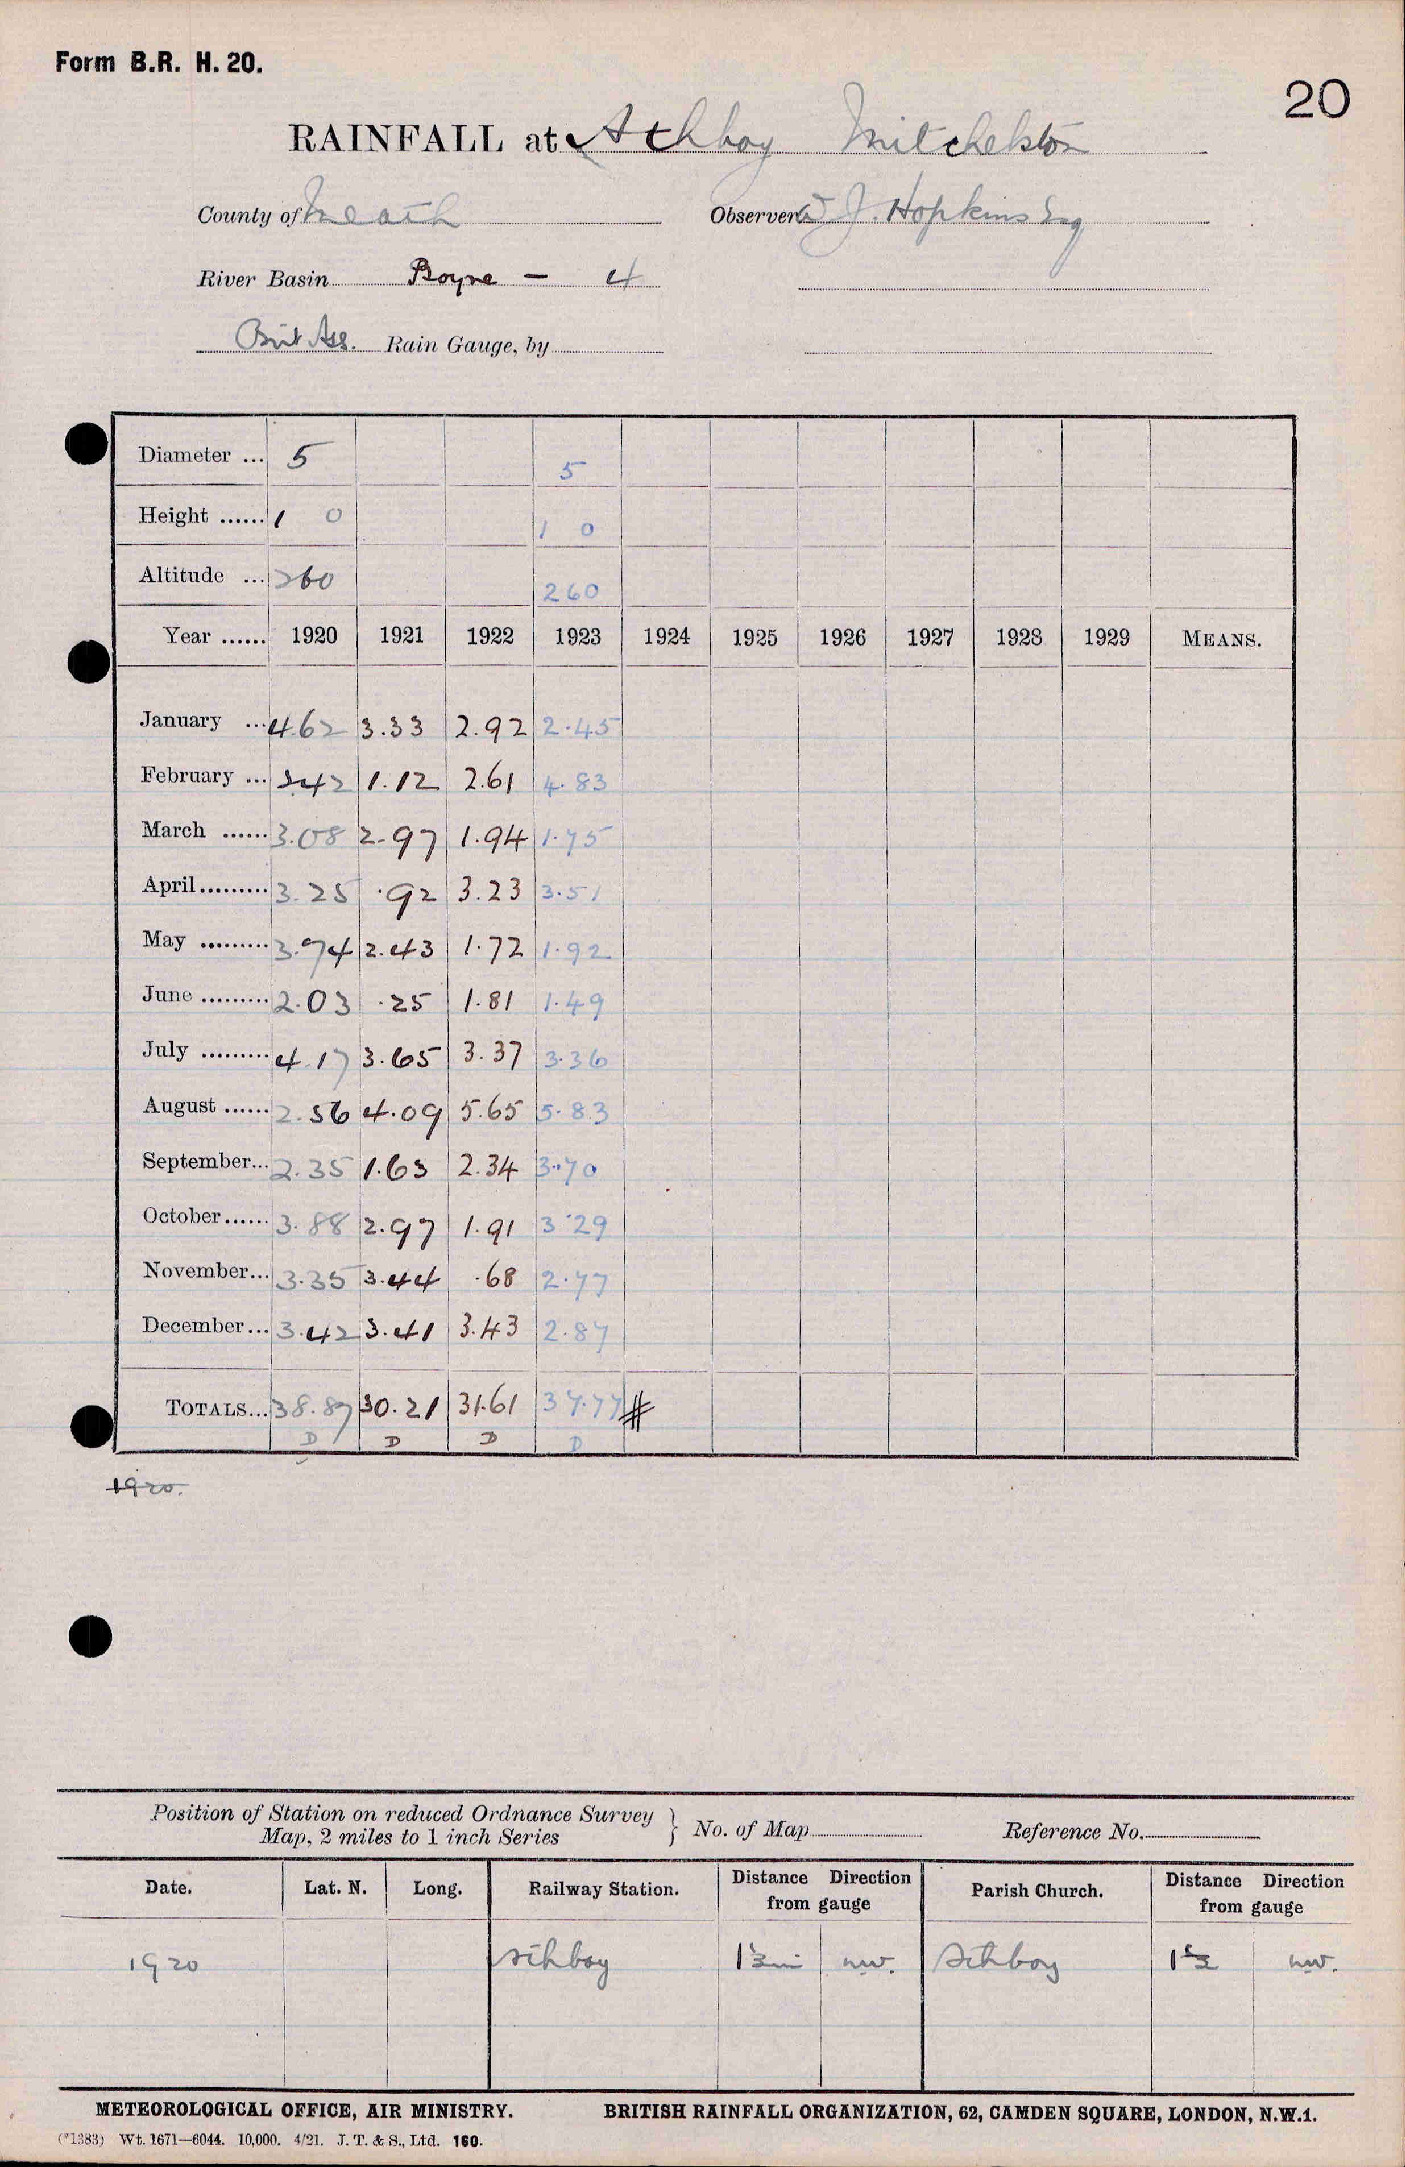 Form B.R. H. 20.
20
RAINFALL at Athboy Mitchelston
County of Meath Observer W J. Hopkins Esq
River Basin Boyne — 4
Brit Ass. Rain Gauge, by
Diameter ... 5 5
Height ...... 1 0 1 0
Altitude ... 260 260
Year ...... 1920 1921 1922 1923 1924 1925 1926 1927 1928 1929 MEANS.
January ... 4.62 3.33 2.92 2.45
February ... 2.42 1.12 2.61 4.83
March ...... 3.08 2.97 1.94 1.75
April ......... 3.25 .92 3.23 3.51
May ......... 3.74 2.43 1.72 1.92
June ......... 2.03 .25 1.81 1.49
July ......... 4.17 3.65 3.37 3.36
August ...... 2.56 4.09 5.65 5.83
September... 2.35 1.63 2.34 3.70
October...... 3.88 2.97 1.91 3.29
November... 3.35 3.44 .68 2.77
December... 3.42 3.41 3.43 2.87
TOTALS... 38.87 30.21 31.61 37.77 #
D D D D
1920.
Position of Station on reduced Ordnance Survey
Map, 2 miles to 1 inch Series } No. of Map Reference No.
Date. Lat. N. Long. Railway Station. Distance Direction from gauge Parish Church. Distance Direction from gauge
1920 Athboy 1½ m NW. Athboy 1½ NW.
METEOROLOGICAL OFFICE, AIR MINISTRY. BRITISH RAINFALL ORGANIZATION, 62, CAMDEN SQUARE, LONDON, N.W.1.
(*1383) Wt. 1671—6044. 10,000. 4/21. J. T. & S., Ltd. 160.